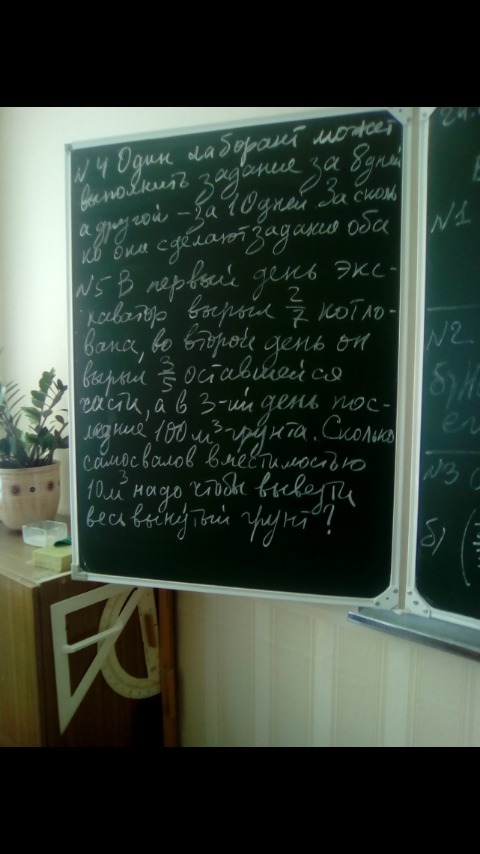 N 4 Один лаборант может
выполнить задание за 8 дней
а другой – за 10 дней За сколь
ко они сделают задание оба
N5 В первый день экс-
каватор вырыл 2/7 котло-
вана, во второй день он
вырыл 3/5 оставшейся
части, а в 3-ий день пос-
ледние 100 м³-грунта. Сколько
самосвалов вместимостью
10 м³ надо чтобы вывезти
весь вынутый грунт?
N1
N2
N3
б) (